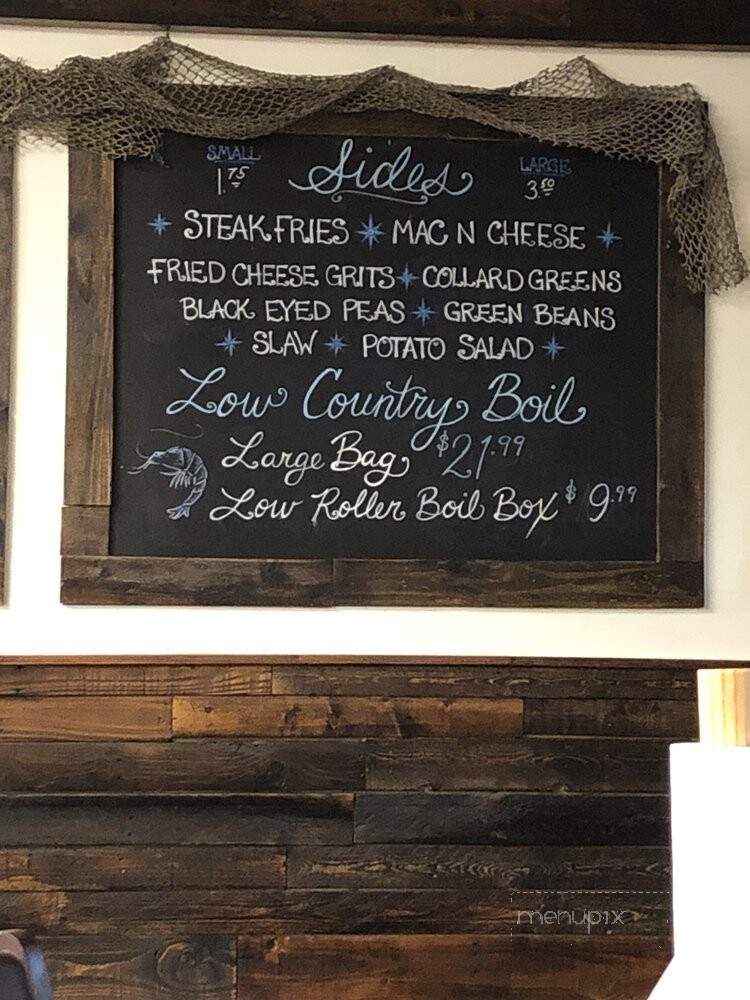 SMALL Sides LARGE
1.75 3.50
STEAK FRIES MAC N CHEESE
FRIED CHEESE GRITS COLLARD GREENS
BLACK EYED PEAS GREEN BEANS
SLAW POTATO SALAD
Low Country Boil
Large Bag $21.99
Low Roller Boil Box $9.99
menupix